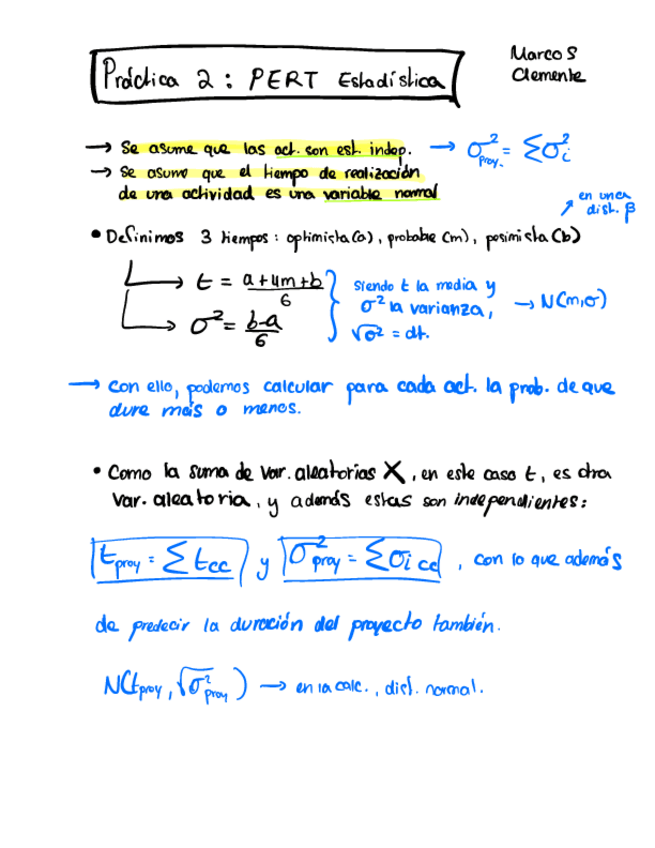 Práctica 2: PERT Estadística
Marcos
Clemente
→ Se asume que las act. son est. indep. → σ²proy. = Σσ²i
→ Se asume que el tiempo de realización
de una actividad es una variable normal
en una
dist. β
• Definimos 3 tiempos: optimista(a), probable(m), pesimista(b)
t = a+4m+b / 6
σ² = b-a / 6
siendo t la media y
σ² la varianza,
√σ² = dt.
→ N(m,σ)
→ Con ello, podemos calcular para cada act. la prob. de que
dure más o menos.
• Como la suma de var. aleatorias X, en este caso t, es otra
var. aleatoria, y además estas son independientes:
tproy = Σtcc y σ²proy = Σσi cc, con lo que además
de predecir la duración del proyecto también.
N(tproy, √σ²proy) → en la calc., dist. normal.